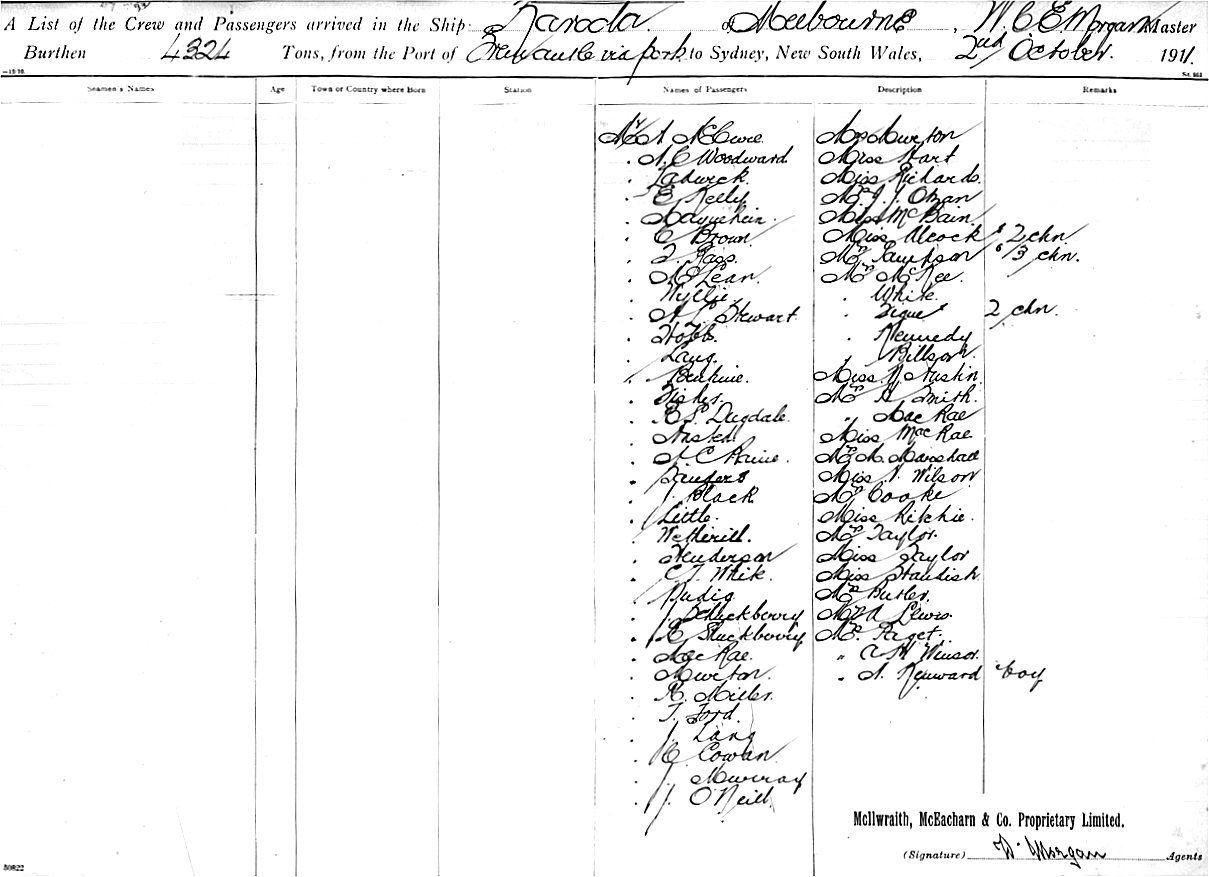 A List of the Crew and Passengers arrived in the Ship Karoola of Melbourne, W. C. E. Morgan Master
Burthen 4324 Tons, from the Port of Fremantle via ports to Sydney, New South Wales, 2nd October. 1911.
Seamen's Names Age Town or Country where Born Station Names of Passengers Description Remarks
Mr A. McClure Mrs Murton
" A. C. Woodward Miss Hart
" Miss Richards.
" E Kelly Mr J. J.
" Miss McBain
" C Brown Miss Alcock & 2 chn.
" Mrs & 3 chn.
" McLean Mrs McKee.
" Wyllie " White.
" A. L. Stewart " 2 chn.
" " Kennedy
" Lang. " Billson.
" Miss Austin
" Fisher. Mrs H Smith.
" E. S. Dugdale. " MacRae
" Miss MacRae
" Mrs M. Marshall
" Sanders Miss V. Wilson
" J. Black Mrs Cooke
" Little. Miss Ritchie.
" Wetherill. Mrs Taylor.
" Henderson Miss Taylor
" C. J. White. Miss Standish
" Mrs Butler.
" J. Shuckberry Lewis.
" E Shuckberry Mrs Paget.
" MacRae. " A H Winsor.
" Murton. " A. Kenward boy
" R. Miller.
" T. Ford.
" J. Lang
" C Cowan
" J. Murray
" J. O'Neill
McIlwraith, McEacharn & Co. Proprietary Limited.
(Signature) W. Morgan Agents
50822